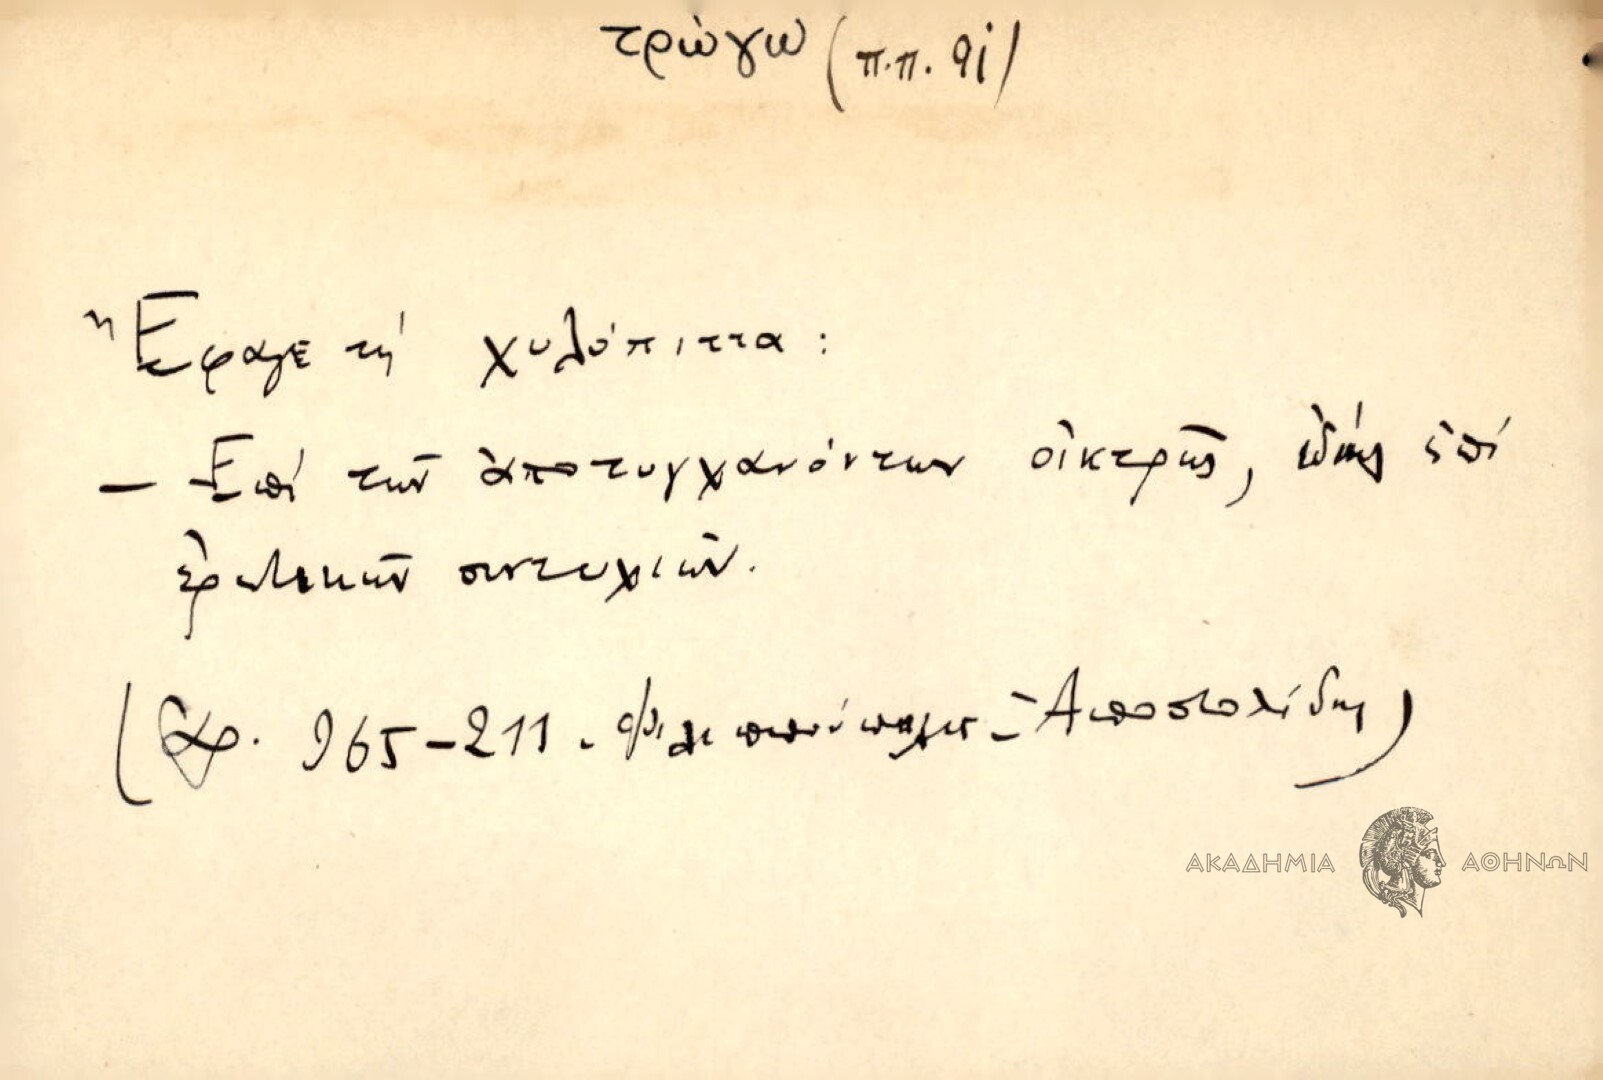 τρώγω (π.π. 91)
Ἔφαγε τή χυλόπιττα:
— Ἐπί τῶν ἀποτυγχανόντων οἰκτρῶς, ἰδίως ἐπί
ἐρωτικῶν συντυχιῶν.
(Ἀρ. 965-211. Φιλιππούπολις - Ἀποστολίδης)
ΑΚΑΔΗΜΙΑ ΑΘΗΝΩΝ